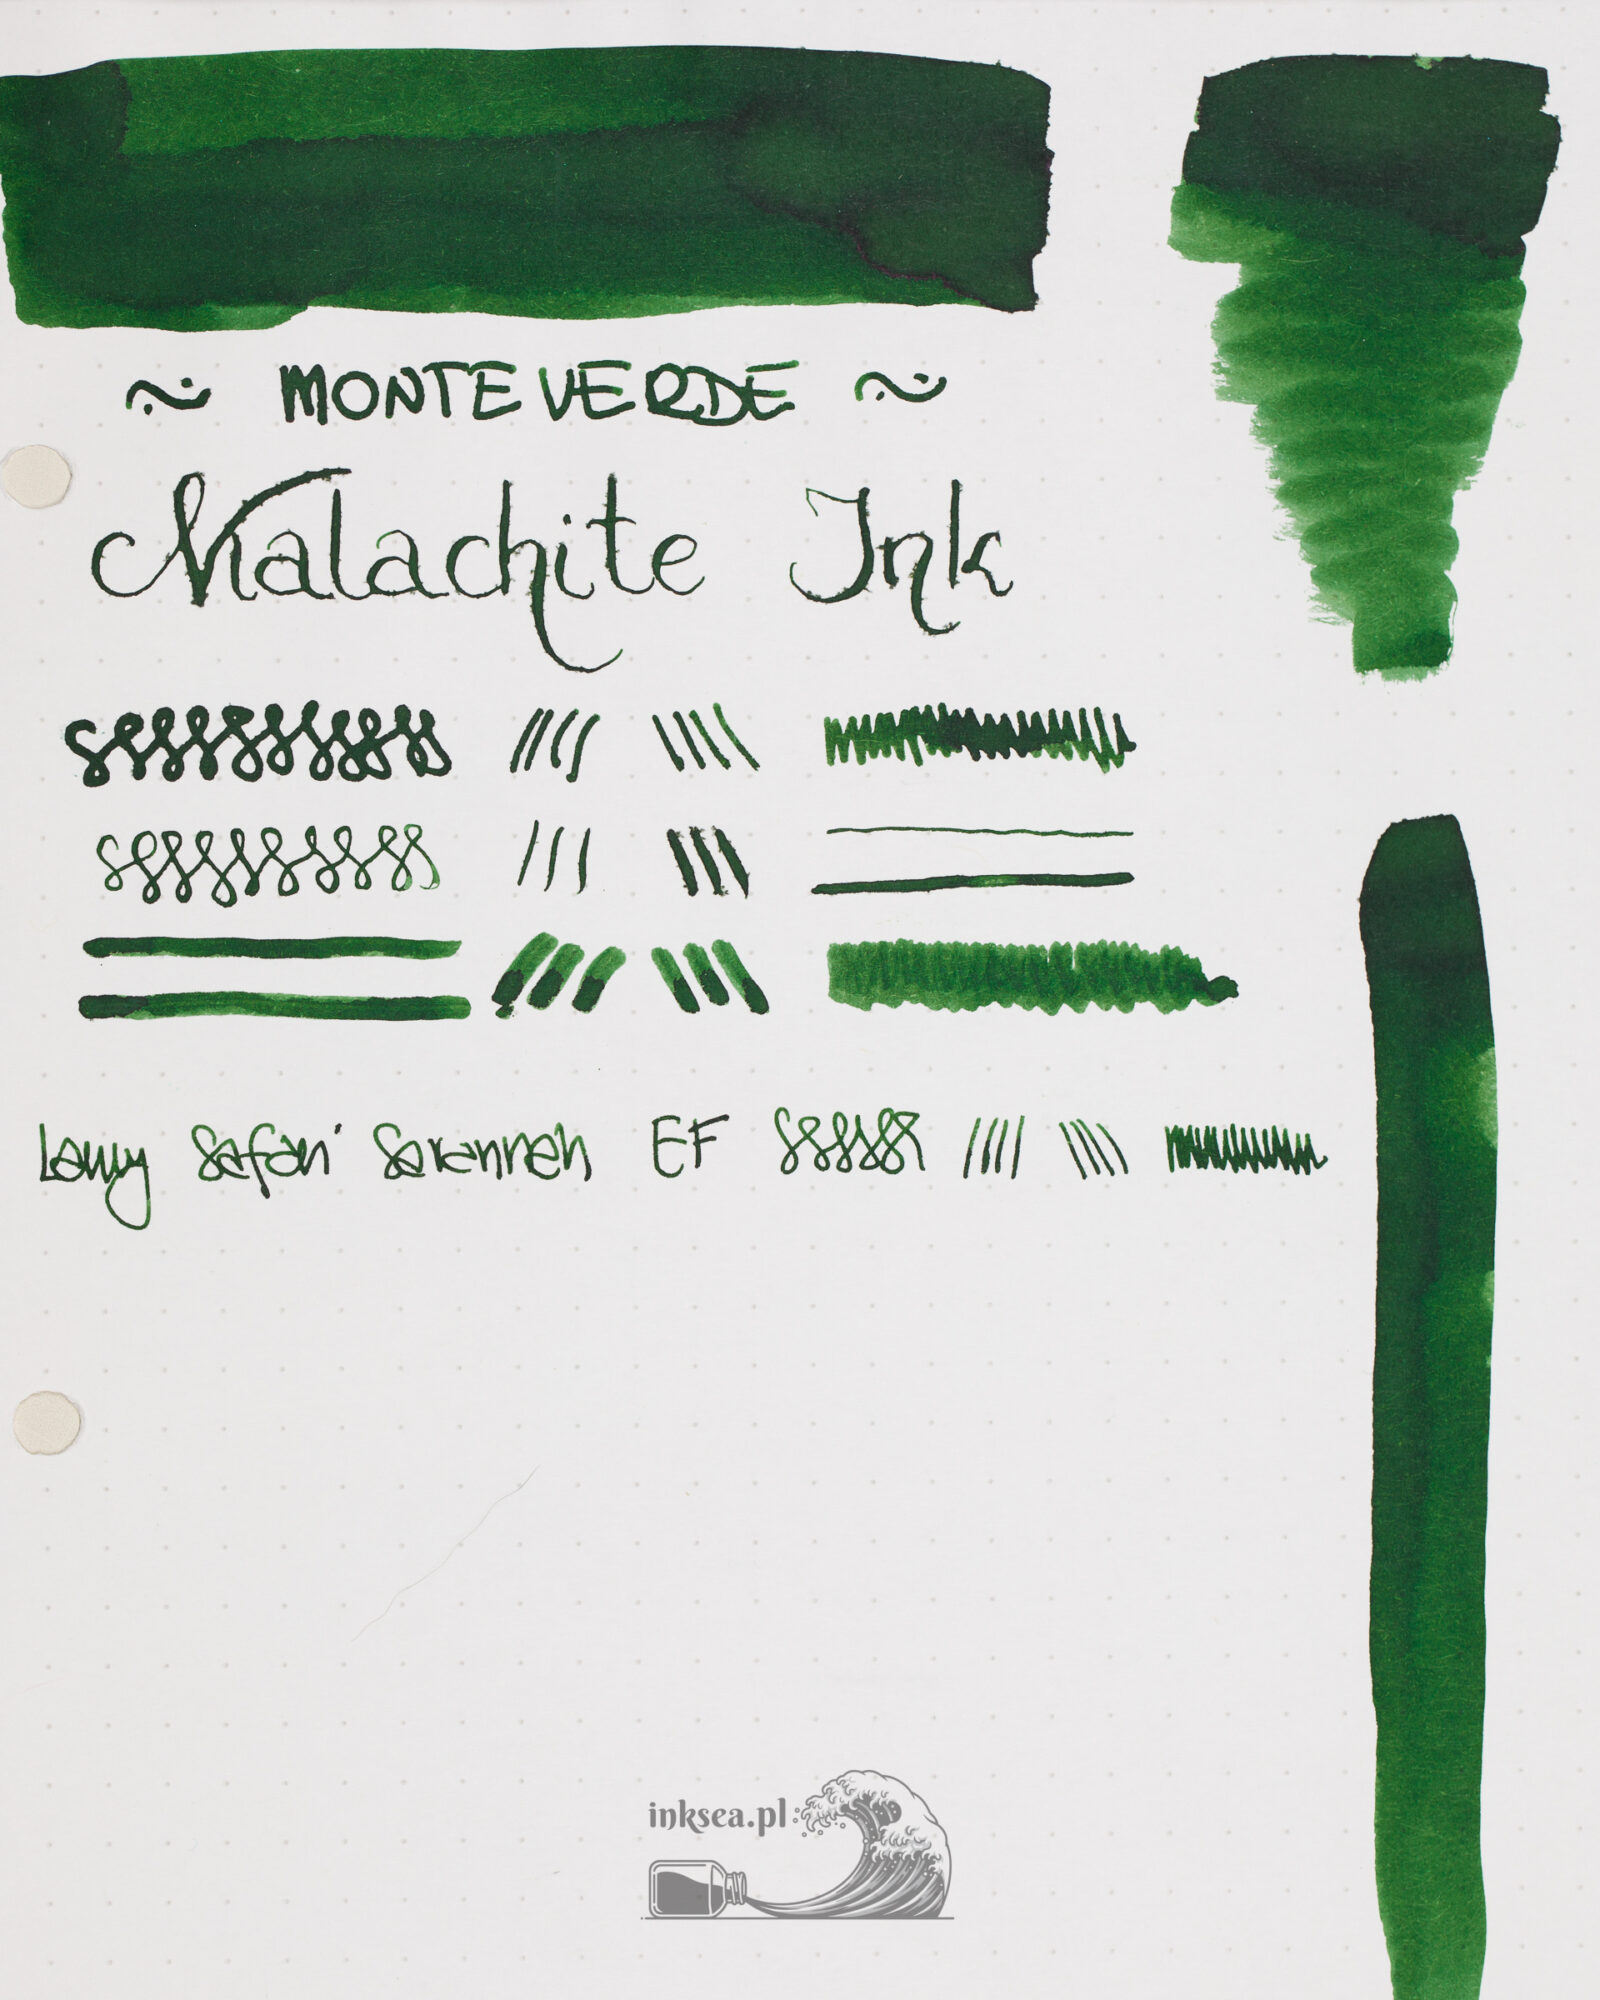 ~ MONTEVERDE ~
Malachite Ink
Lamy Safari Savannah EF
inksea.pl